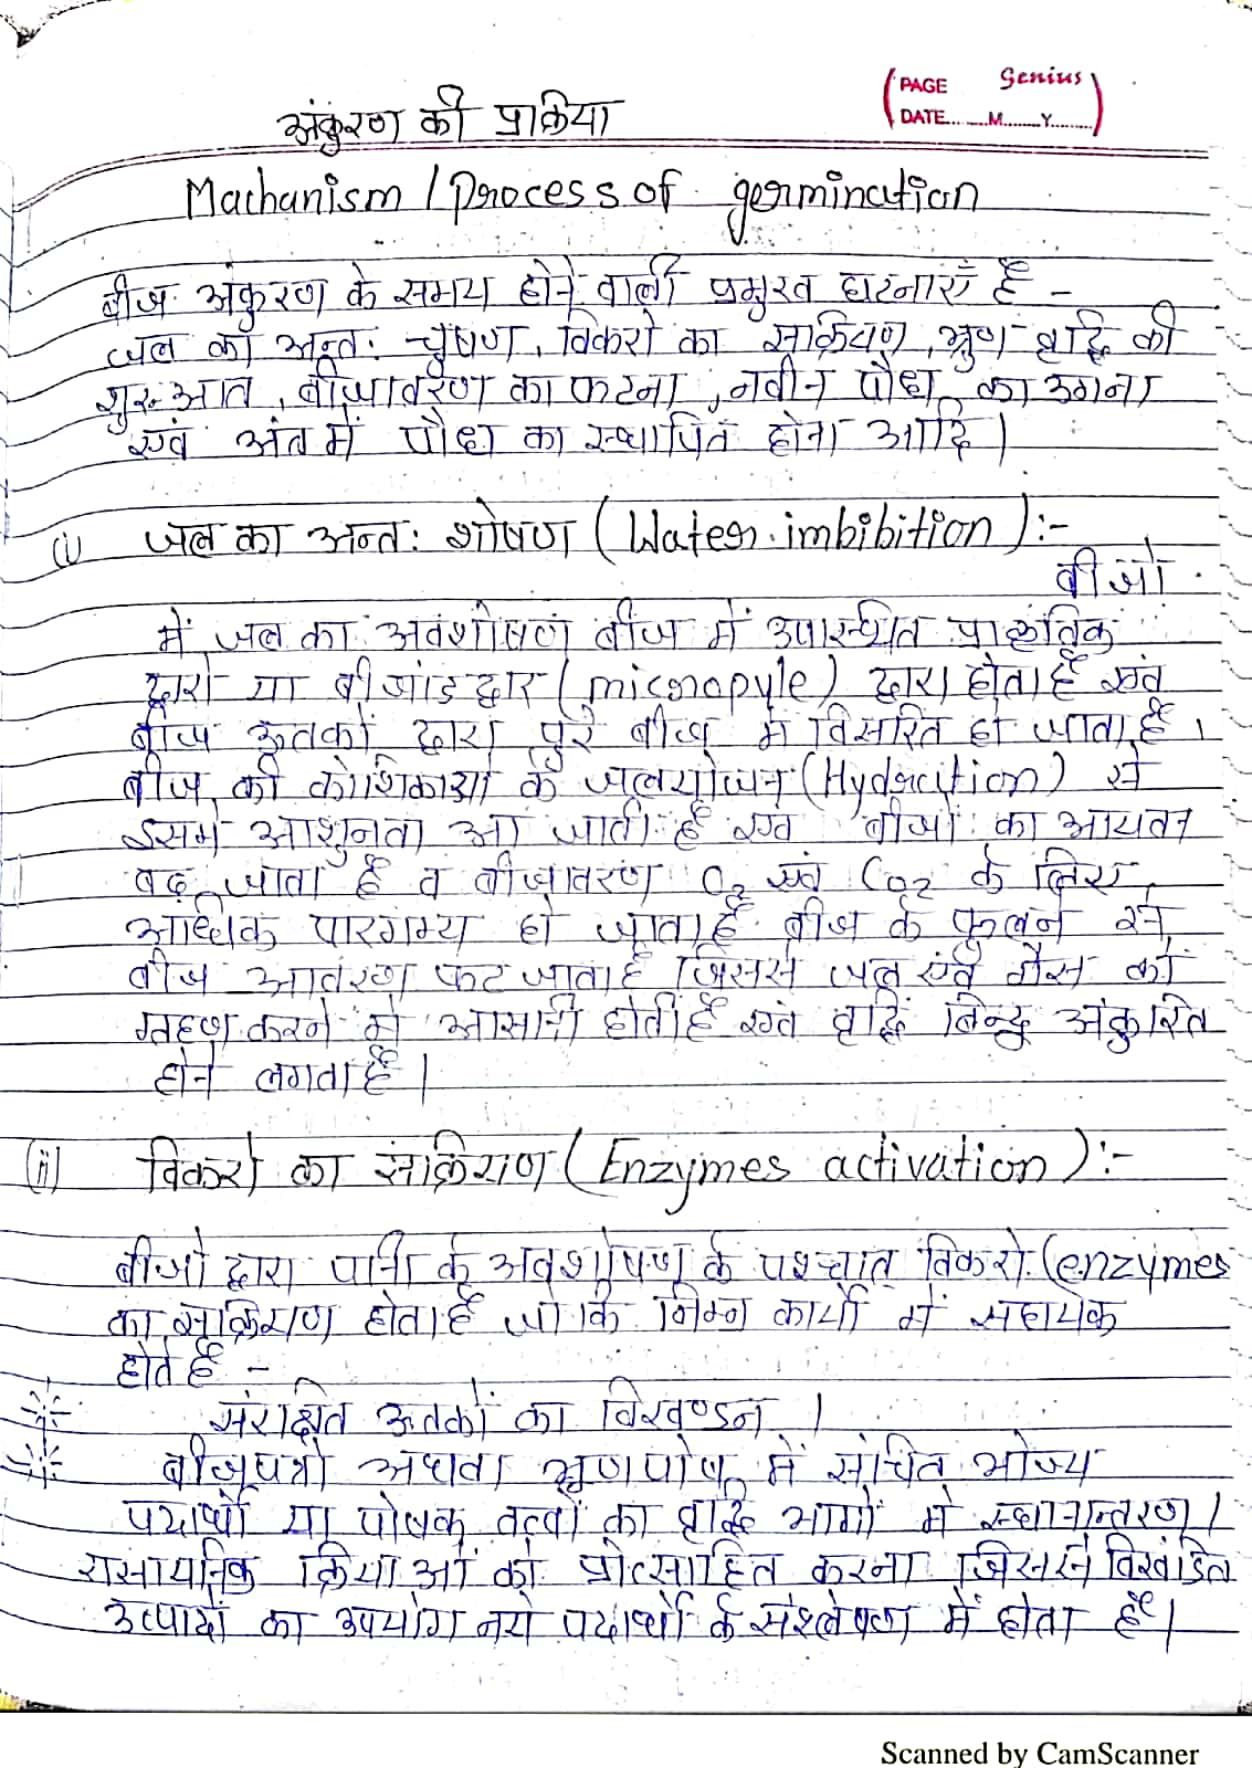 PAGE Genius
DATE.......M.......Y........
अंकुरण की प्रक्रिया
Machanism / Process of germination
बीज अंकुरण के समय होने वाली प्रमुख घटनाएँ है -
जल का अन्त: चूषण, विकरो का सक्रियण, भ्रुण वृद्धि की
शुरुआत, बीजावरण का फटना, नवीन पौधा का उगना
एवं अंत में पौधा का स्थापित होना आदि।
(i) जल का अन्त: शोषण (Water imbibition) :-
बीजो
में जल का अवशोषण बीज में उपस्थित प्राकृतिक
द्वारो या बीजांडद्वार (micropyle) द्वारा होता है एवं
बीज ऊतकों द्वारा पुरे बीज में विसरित हो जाता है।
बीज की कोशिकाओ के जलयोजन (Hydration) से
इसमे आशुनता आ जाती है एवं बीजों का आयतन
बढ़ जाता है व बीजावरण O2 एवं CO2 के लिए
अधिक पारगम्य हो जाता है बीज के फुलने से
बीज आवरण फट जाता है जिससे जल एंव गैस को
ग्रहण करने मे आसानी होती है एवं वृद्धि बिन्दु अंकुरित
होने लगता है।
(ii) विकरो का सक्रिराण (Enzymes activation) :-
बीजो द्वारा पानी के अवशोषण के पश्चात विकरो (enzymes
का सक्रिराण होता है जो कि निम्न कार्यो में सहायक
होते है -
संरक्षित ऊतकों का विखण्डन।
बीजपत्रो अथवा भ्रूणपोष में संचित भोज्य
पदार्थो या पोषक तत्वों का वृद्धि भागों मे स्थानान्तरण।
रासायनिक क्रियाओं को प्रोत्साहित करना जिससे विखंडित
उत्पादों का उपयोग नये पदार्थो के संश्लेषण में होता है।
Scanned by CamScanner